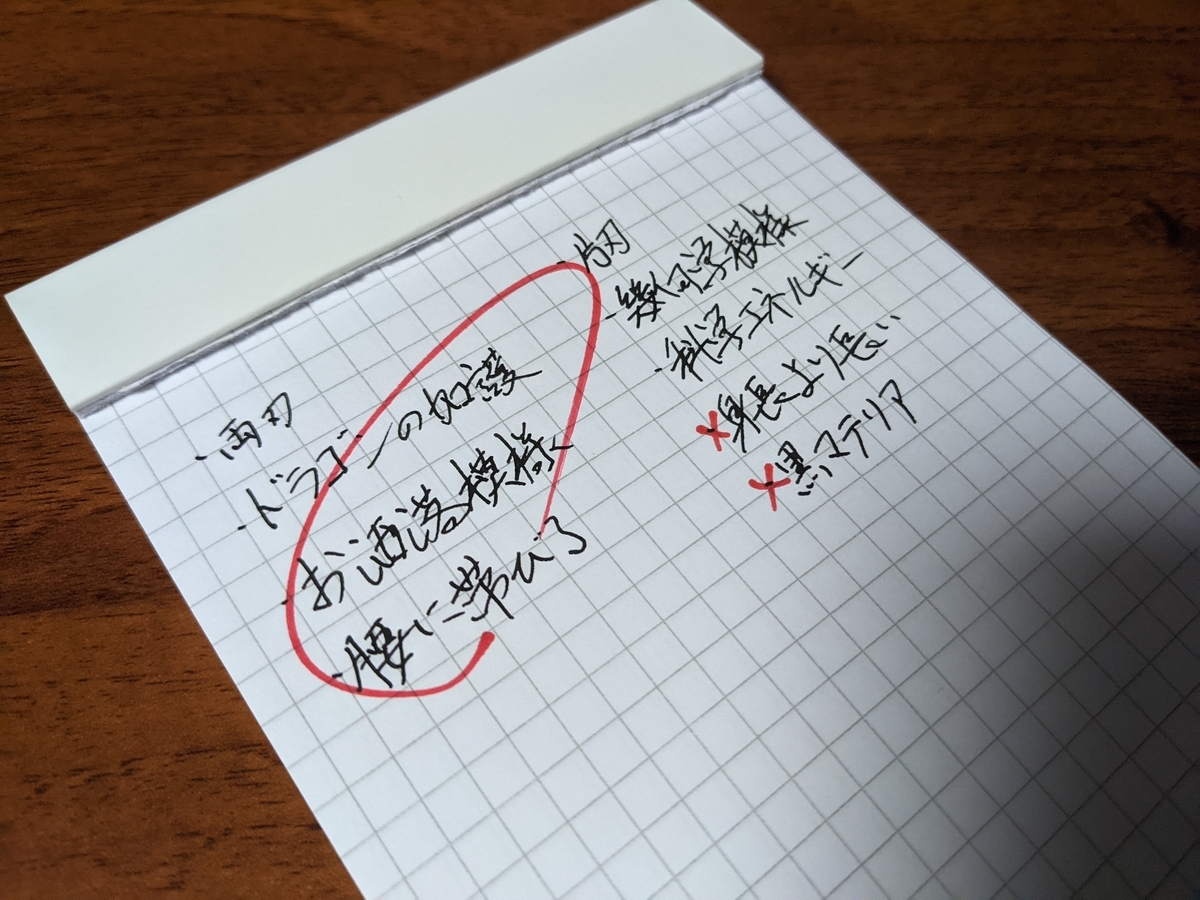 ・両刃
・ドラゴンの加護
・お洒落模様
・腰に帯びる
・片刃
・幾何学模様
・科学エネルギー
×身長より長い
×・黒マテリア